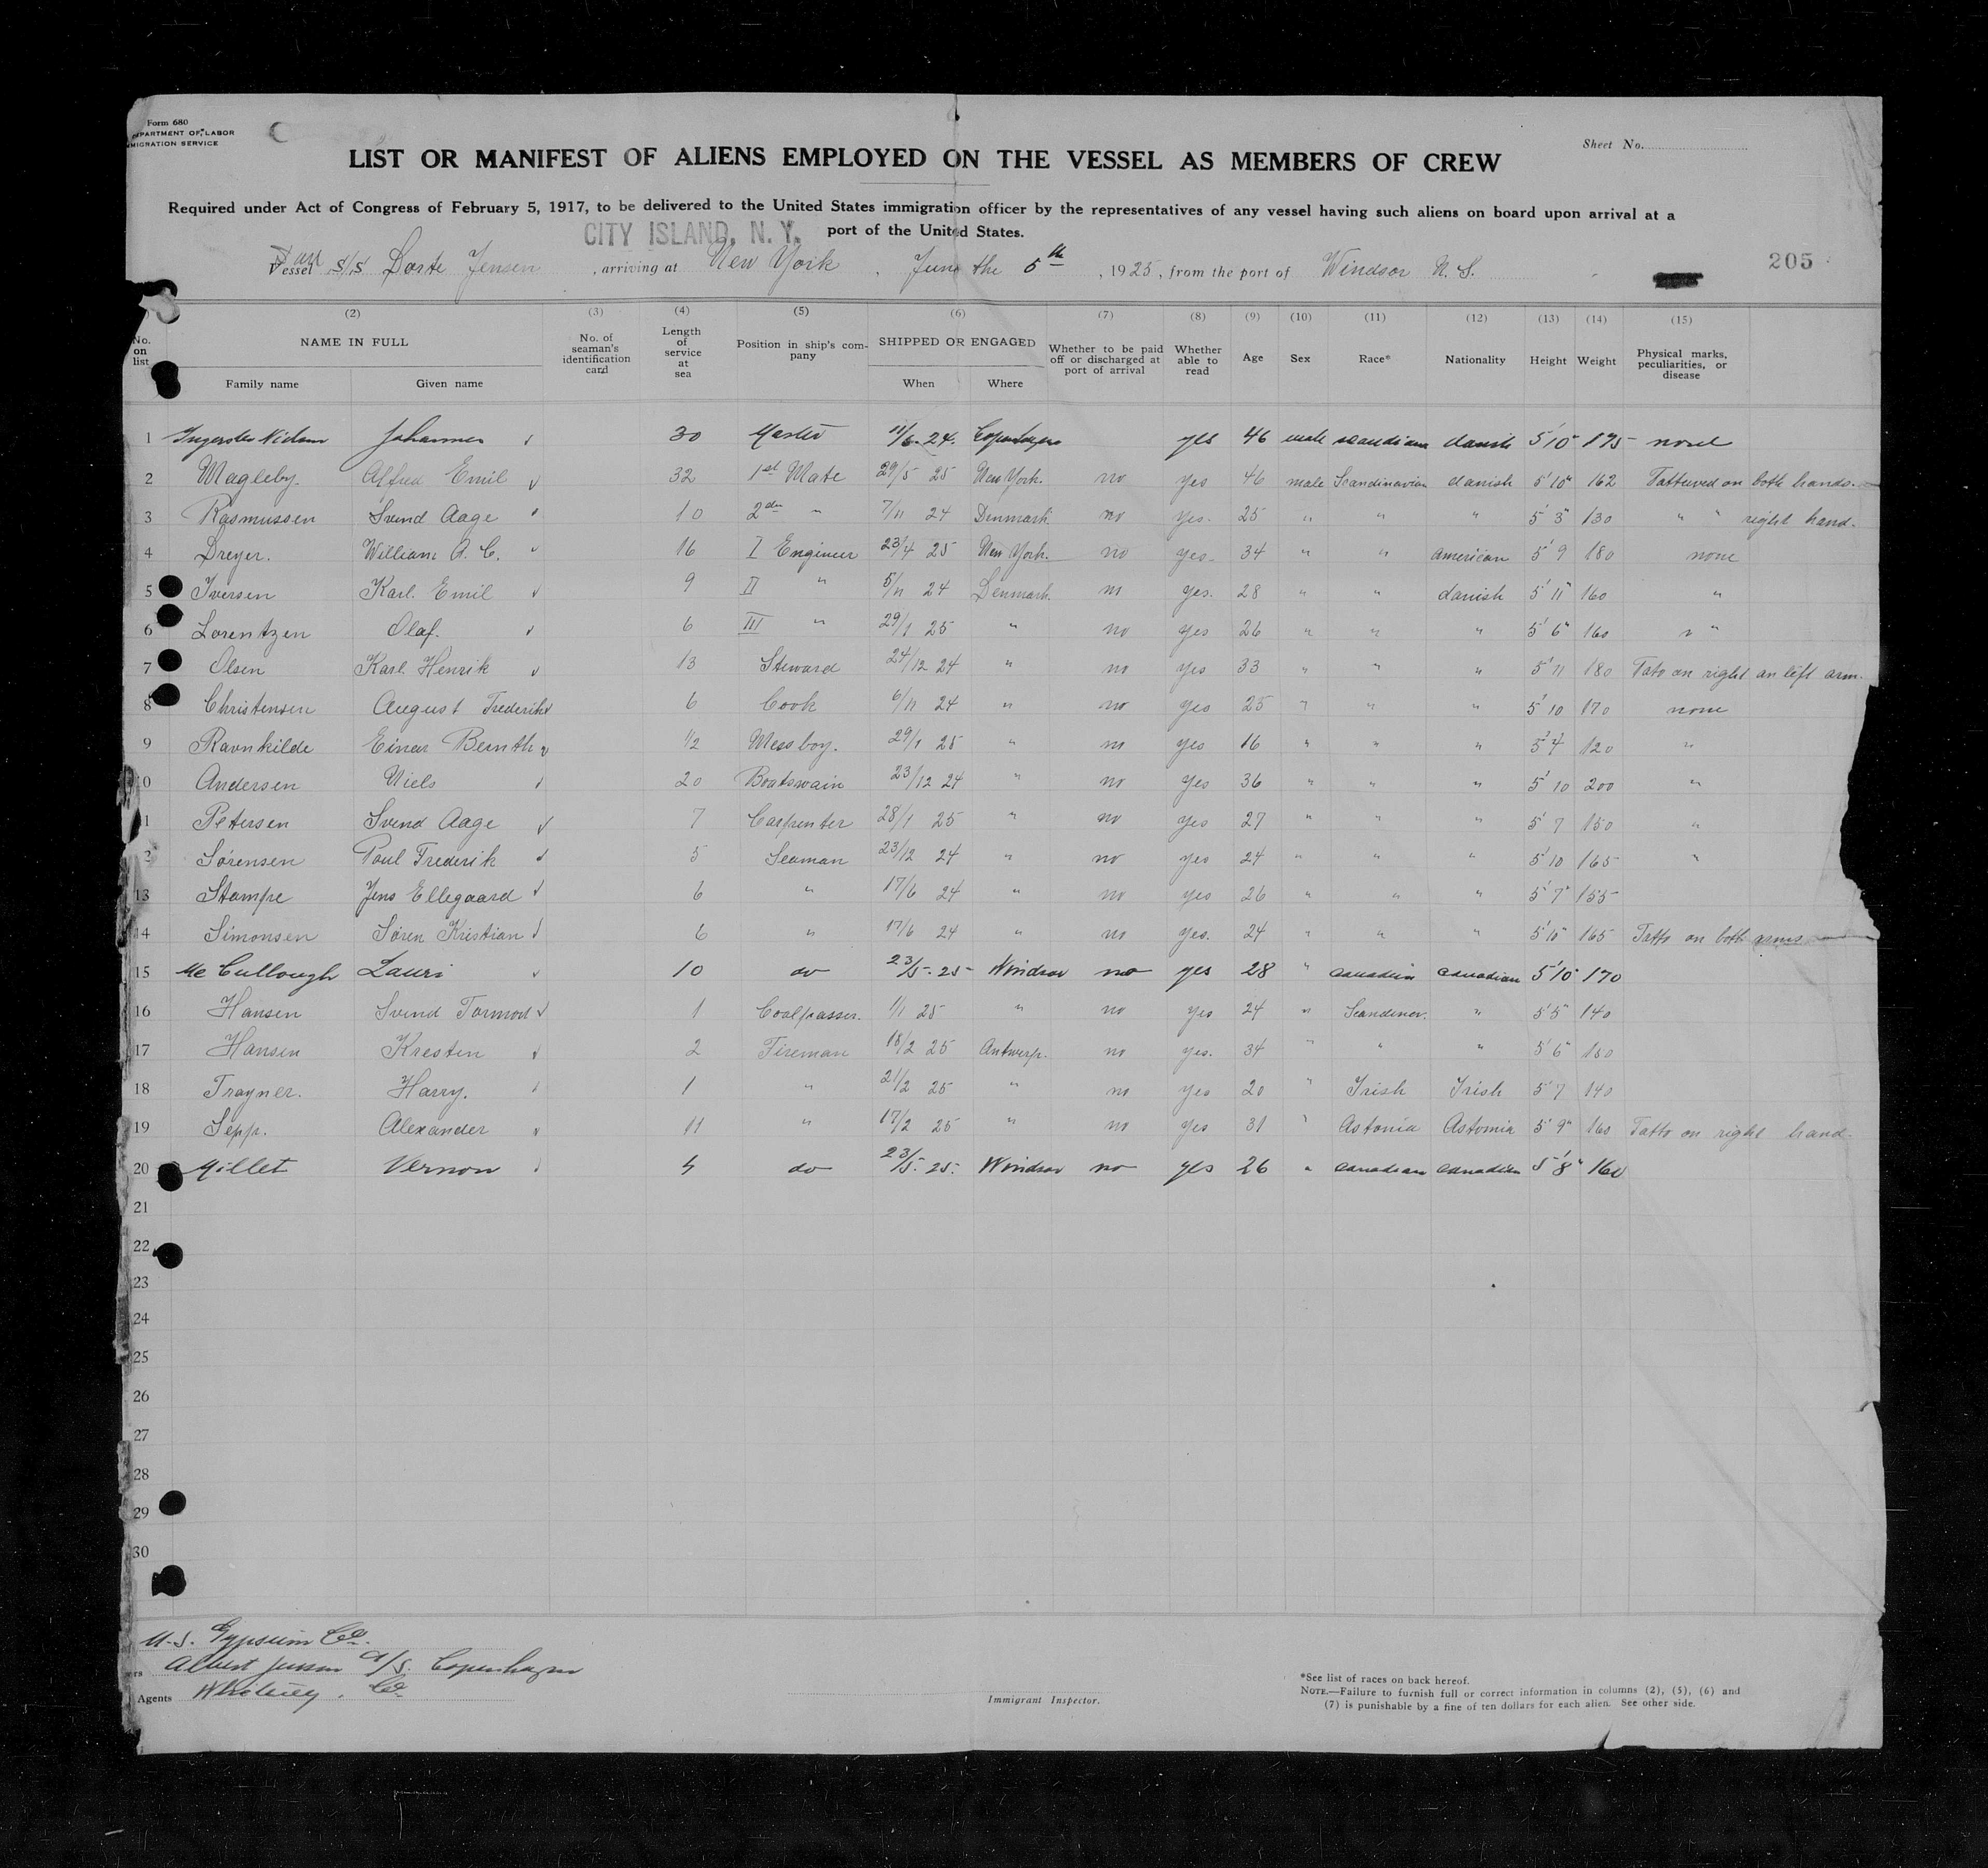 Form 680
DEPARTMENT OF LABOR
IMMIGRATION SERVICE
Sheet No.
LIST OR MANIFEST OF ALIENS EMPLOYED ON THE VESSEL AS MEMBERS OF CREW
Required under Act of Congress of February 5, 1917, to be delivered to the United States immigration officer by the representatives of any vessel having such aliens on board upon arrival at a
port of the United States.
CITY ISLAND, N. Y.
Dan
Vessel S/S Dorte Jensen, arriving at New York, June the 5th, 1925, from the port of Windsor N. S.
205
No. on list
(2) NAME IN FULL Family name Given name
(3) No. of seaman's identification card
(4) Length of service at sea
(5) Position in ship's company
(6) SHIPPED OR ENGAGED When Where
(7) Whether to be paid off or discharged at port of arrival
(8) Whether able to read
(9) Age
(10) Sex
(11) Race*
(12) Nationality
(13) Height
(14) Weight
(15) Physical marks, peculiarities, or disease
1 Johannes 30 Master 24. Copenhagen yes 46 male scandinav danish 5'10" 175 none
2 Magleby. Alfred Emil v 32 1st Mate 29/5 25 New York. no yes 46 male Scandinavian danish 5'10" 162 Tattuved on both hands.
3 Rasmussen Svend Aage 10 2den " 7/11 24 Denmark. no yes. 25 " " " 5'3" 130 " " right hand.
4 Dreyer. William A. C. v 16 I Engineer 23/4 25 New York. no yes. 34 " " american 5'9 180 none
5 Iversen Karl Emil v 9 II " 5/11 24 Denmark. no yes. 28 " " danish 5'11" 160 "
6 Lorentzen Olaf. v 6 III " 29/1 25 " no yes 26 " " " 5'6" 160 " "
7 Olsen Karl Henrik v 13 Steward 24/12 24 " no yes 33 " " " 5'11 180 Tato on right an left arm.
8 Christensen August Frederik v 6 Cook 6/11 24 " no yes 25 " " " 5'10 170 none
9 Ravnkilde Einar Bernth v 1/2 Messboy. 29/1 25 " no yes 16 " " " 5'4 120 "
0 Andersen Niels v 20 Boatswain 23/12 24 " no yes 36 " " " 5'10 200 "
1 Petersen Svend Aage v 7 Carpenter 28/1 25 " no yes 27 " " " 5'7 150 "
2 Sørensen Poul Frederik v 5 Seaman 23/12 24 " no yes 24 " " " 5'10 165 "
13 Stampe Jens Ellegaard v 6 " 17/6 24 " no yes 26 " " " 5'7" 155
14 Simonsen Søren Kristian v 6 " 17/6 24 " no yes. 24 " " " 5'10" 165 Tatto on both arms
15 Mc Cullough Lauri v 10 do 23/5-25 Windsor no yes 28 " canadian canadian 5'10" 170
16 Hansen Svend Tormod v 1 Coalpasser. 1/1 25 " no yes 24 " Scandinav. " 5'5" 140
17 Hansen Kresten v 2 Fireman 18/2 25 Antwerp. no yes. 34 " " " 5'6"
18 Trayner. Harry. v 1 " 21/2 25 " no yes 20 " Irish Irish 5'7 140
19 Sepp. Alexander v 11 " 17/2 25 " no yes 31 " Astonia Astonia 5'9" 160 Tatto on right hand.
20 Millet Vernon v do 23/5-25 Windsor no yes 26 " canadian canadian 5'8" 160
21
22
23
24
25
26
27
28
29
30
U.S. Gypsum Co.
Albert Jensen A/S. Copenhagen
Agents Co
Immigrant Inspector.
*See list of races on back hereof.
NOTE.—Failure to furnish full or correct information in columns (2), (5), (6) and
(7) is punishable by a fine of ten dollars for each alien. See other side.